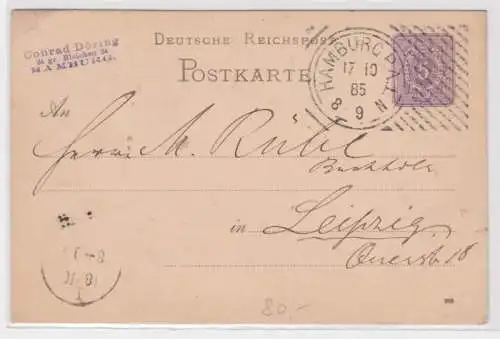 Conrad Döring
24 gr. Bleichen 24
HAMBURG.
DEUTSCHE REICHSPOST
POSTKARTE
HAMBURG P.A.
17 10
85
8 9 N
An
Herrn M. Rühl
Buchholz
in Leipzig
Querstr. 18
80.-